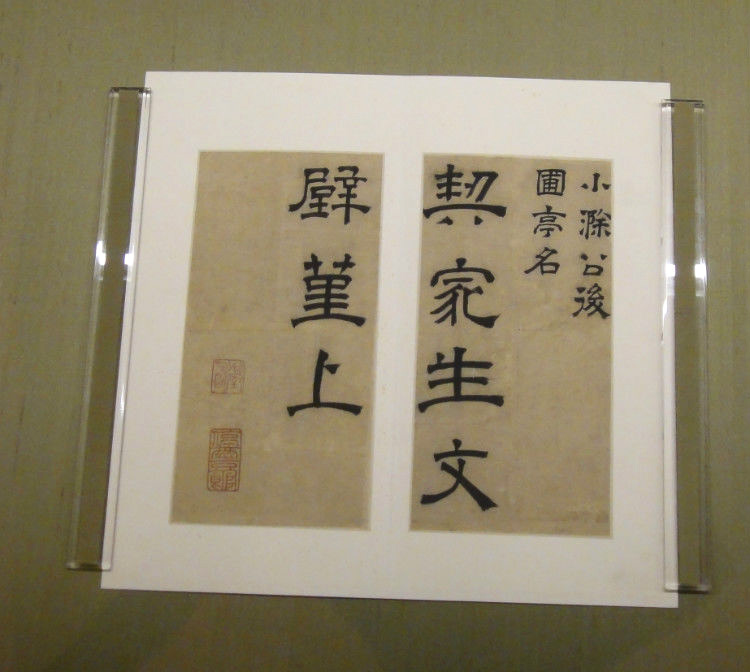 小滁公後
圃亭名
契家生文
壁堇上